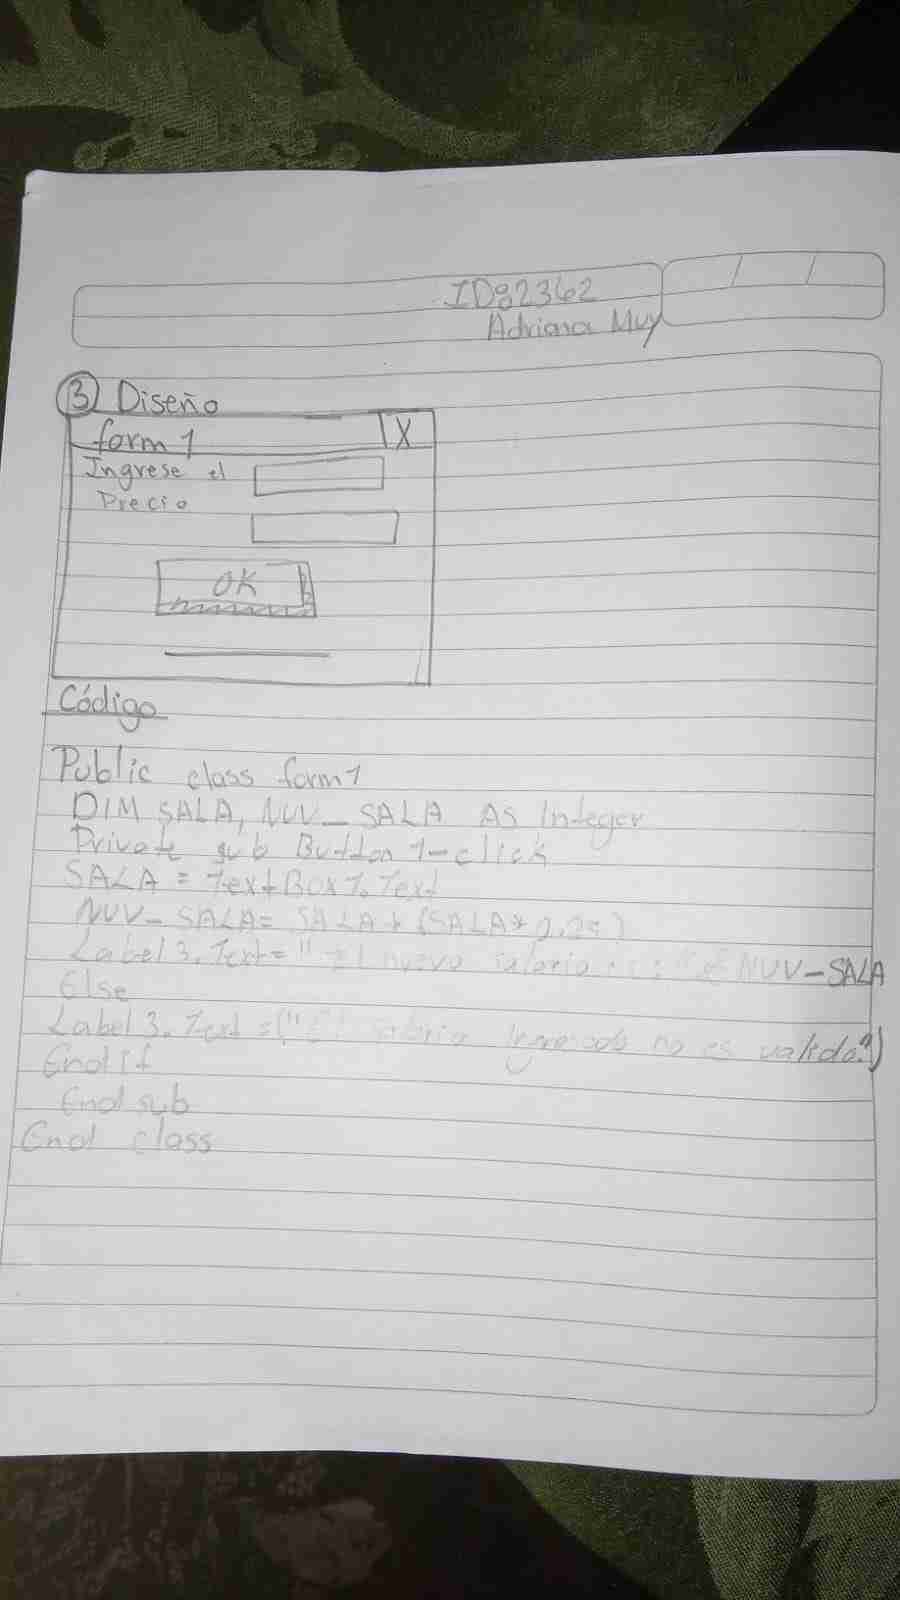 ID:2362
Adriana Muy
③ Diseño
form 1 X
Ingrese el
Precio
OK
Código
Public class form 1
DIM SALA, NUV_SALA As Integer
Private sub Button 1-click
SALA = TextBox 1. Text
NUV-SALA = SALA + (SALA * 0.25)
Label 3. Text = "El nuevo salario : " & NUV-SALA
Else
Label 3. Text = ("El salario Ingresado no es valido")
End if
End sub
End class